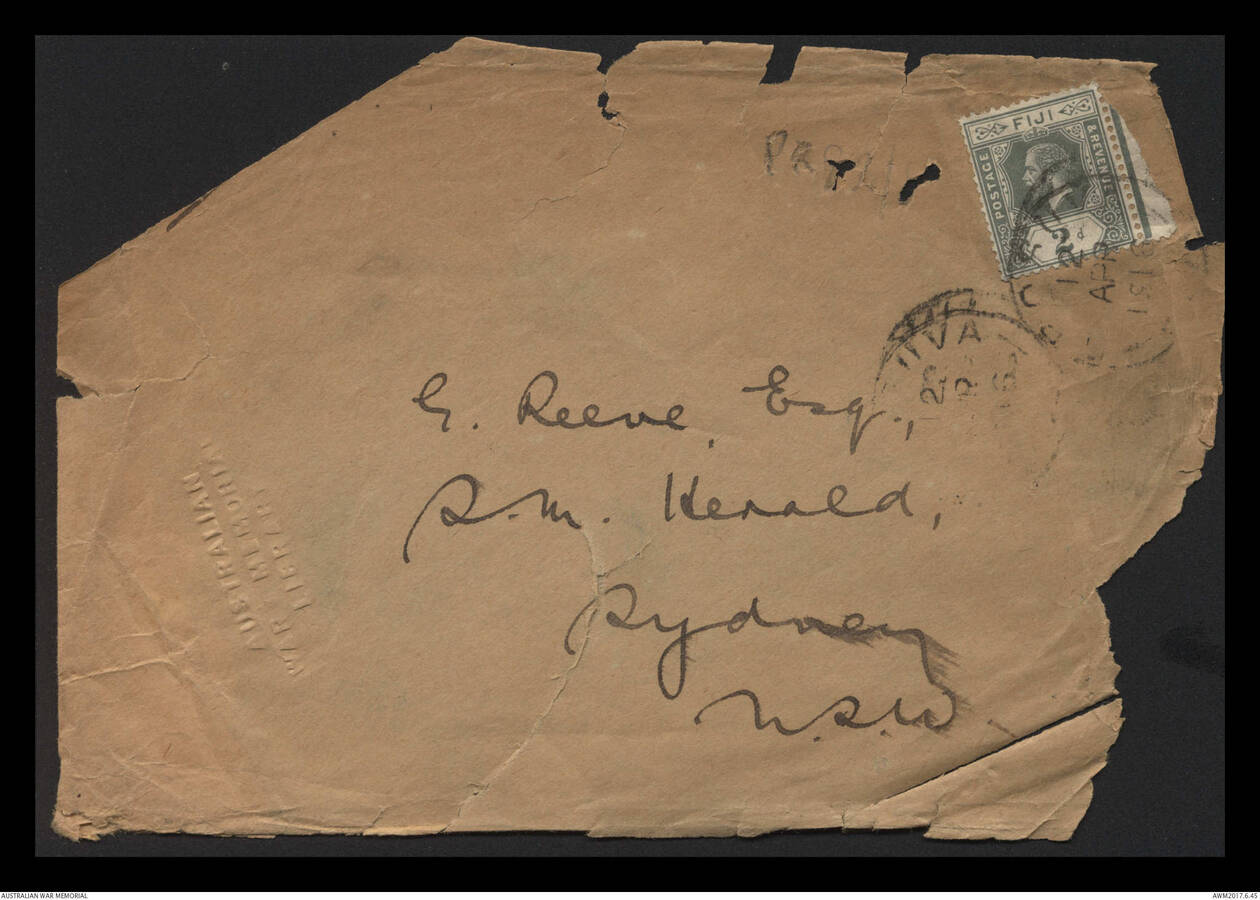 FIJI
POSTAGE
& REVENUE
2d
12
APR
1916
SUVA
G. Reeve, Esq.,
S.M. Herald,
Sydney
N.S.W
AUSTRALIAN
WAR MEMORIAL
LIBRARY
AUSTRALIAN WAR MEMORIAL
AWM2017.6.45